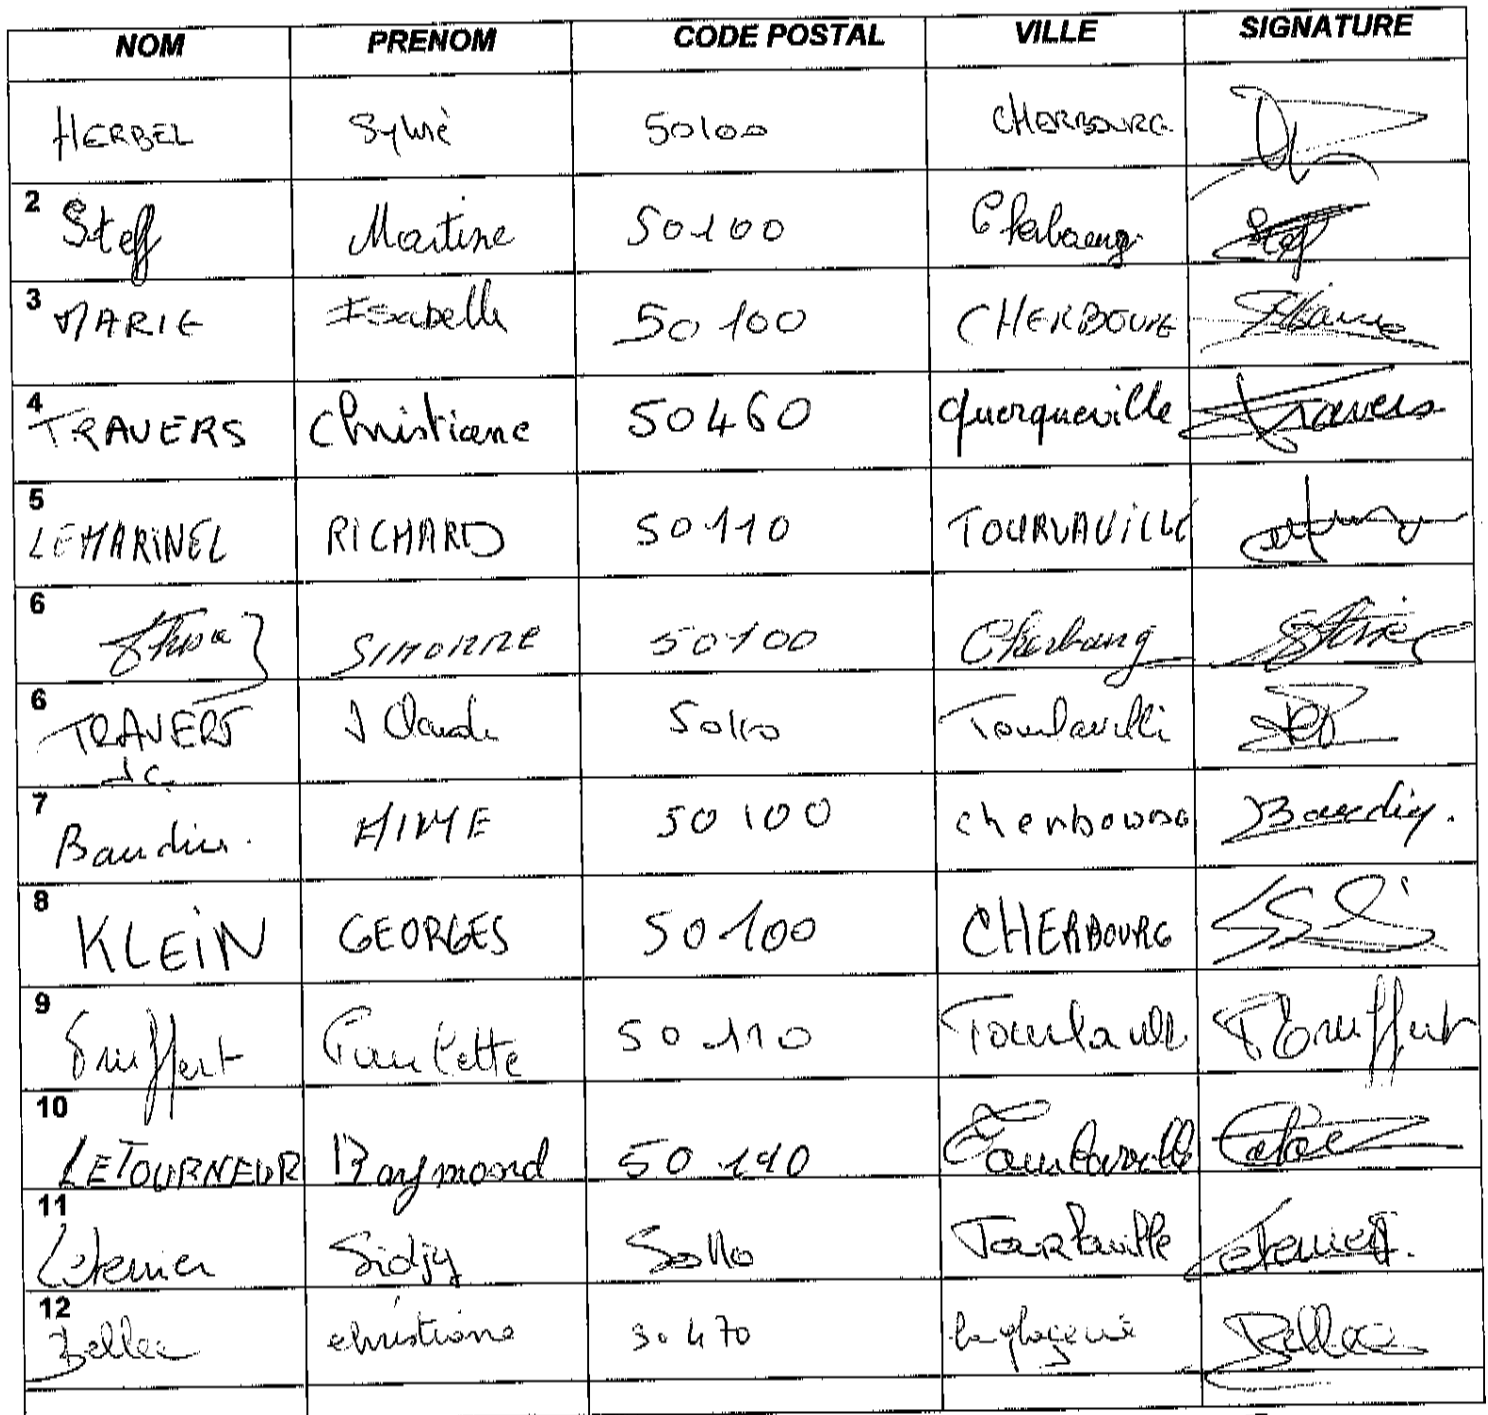 NOM PRENOM CODE POSTAL VILLE SIGNATURE
HERBEL Sylvie 50100 CHERBOURG
2 Steff Martine 50100 Cherbourg Steff
3 MARIE Isabelle 50100 CHERBOURG Marie
4 TRAVERS Christiane 50460 querqueville Travers
5 LEMARINEL RICHARD 50110 TOURVAVILLE
6 SIMONNE 50100 Cherbourg
6 TRAVERT J Claude 50110 Tourlaville
JC
7 Baudin. AIME 50100 cherbourg Baudin.
8 KLEIN GEORGES 50100 CHERBOURG
9 Truffert Paulette 50110 Tourlaville Truffert
10 LETOURNEUR Raymond 50110 Tourlaville
11 Sidjy 50110 Tourlaville
12 Bellec christiane 50470 la glacerie Bellec